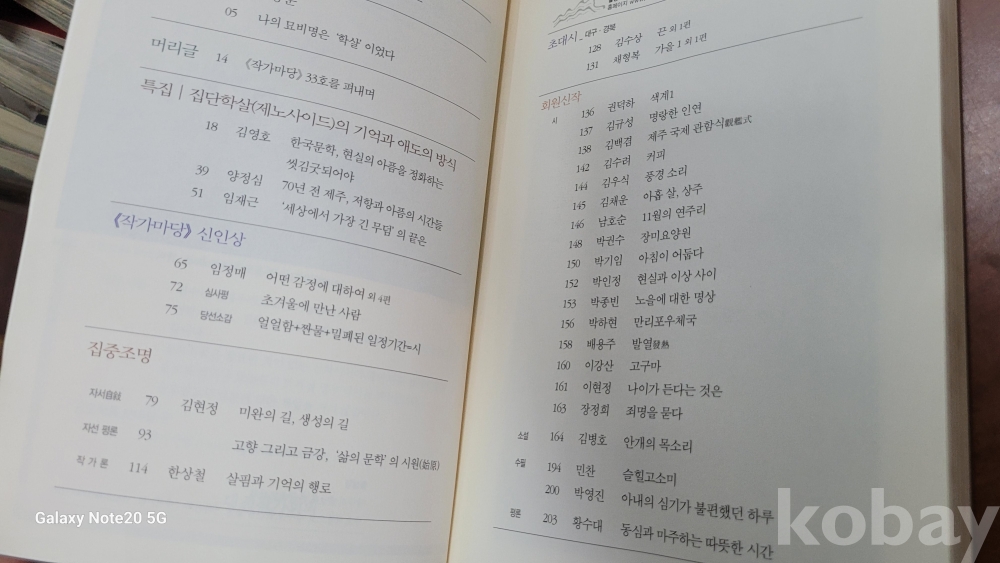 05 나의 묘비명은 '학살'이었다
머리글 14 《작가마당》 33호를 펴내며
특집 | 집단학살(제노사이드)의 기억과 애도의 방식
18 김영호 한국문학, 현실의 아픔을 정화하는
씻김굿되어야
39 양정심 70년 전 제주, 저항과 아픔의 시간들
51 임재근 '세상에서 가장 긴 무덤'의 끝은
《작가마당》 신인상
65 임정매 어떤 감정에 대하여 외 4편
72 심사평 초겨울에 만난 사람
75 당선소감 얼얼함+짠물+밀폐된 일정기간=시
집중조명
자서自敍 79 김현정 미완의 길, 생성의 길
자선 평론 93 고향 그리고 금강, '삶의 문학'의 시원(始原)
작가론 114 한상철 살핌과 기억의 행로
Galaxy Note20 5G
초대시 - 대구·경북
128 김수상 끈 외 1편
131 채형복 가을 1 외 1편
회원신작
시 136 권덕하 색계1
137 김규성 명랑한 인연
138 김백겸 제주 국제 관함식觀艦式
142 김수려 커피
144 김우식 풍경 소리
145 김채운 아홉 살, 상주
146 남호순 11월의 연주리
148 박권수 장미요양원
150 박기임 아침이 어둡다
152 박인정 현실과 이상 사이
153 박종빈 노을에 대한 명상
156 박하현 만리포우체국
158 배용주 발열發熱
160 이강산 고구마
161 이현정 나이가 든다는 것은
163 장정희 죄명을 묻다
소설 164 김병호 안개의 목소리
수필 194 민찬 슬힐고소미
200 박영진 아내의 심기가 불편했던 하루
평론 203 황수대 동심과 마주하는 따뜻한 시간
kobay